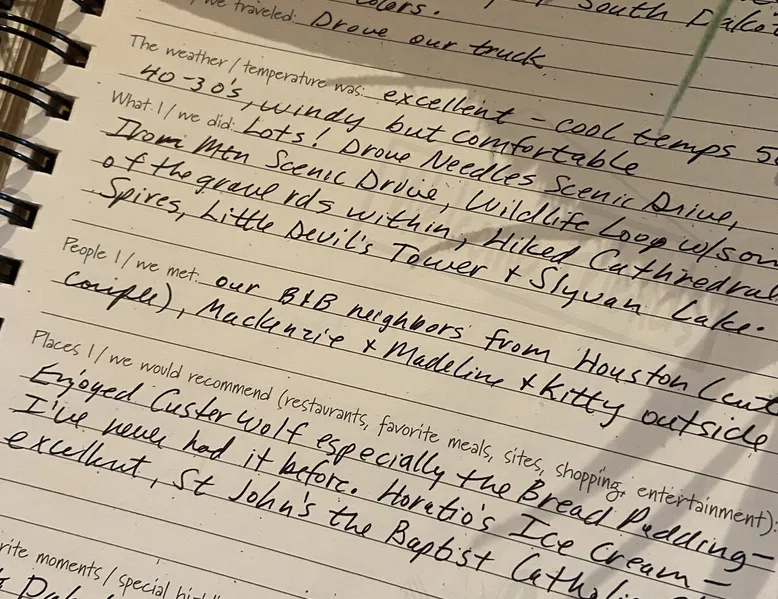 colors. South Dako
I/we traveled: Drove our truck
The weather/temperature was: excellent - cool temps 5
40-30's, windy but comfortable
What I/we did: Lots! Drove Needles Scenic Drive,
Iron Mtn Scenic Drive, Wildlife Loop w/som
of the gravel rds within, Hiked Cathredral
Spires, Little Devil's Tower + Slyvan Lake.
People I/we met: our B&B neighbors from Houston (cute
couple), Mackenzie + Madeline + Kitty outside
Places I/we would recommend (restaurants, favorite meals, sites, shopping, entertainment):
Enjoyed Custer Wolf especially the Bread Pudding-
I've never had it before. Horatio's Ice Cream-
excellent, St John's the Baptist Catholic
rite moments/special highl